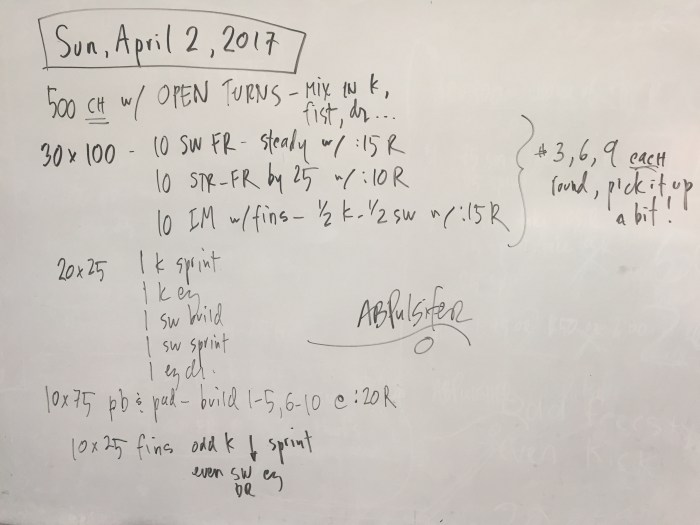 Sun, April 2, 2017
500 CH w/ OPEN TURNS - MIX IN K,
fist, dr...
30 x 100 - 10 SW FR - steady w/ :15 R
10 STR-FR by 25 w/ :10 R
10 IM w/fins - 1/2 k - 1/2 sw w/ :15 R
# 3, 6, 9 each
round, pick it up
a bit!
20x25 1 k sprint
1 k ez
1 sw build
1 sw sprint
1 ez dr.
ABPulsifer
10x75 pb & pad - build 1-5, 6-10 @ :20 R
10x25 fins odd k ↓ sprint
even sw ez
DR